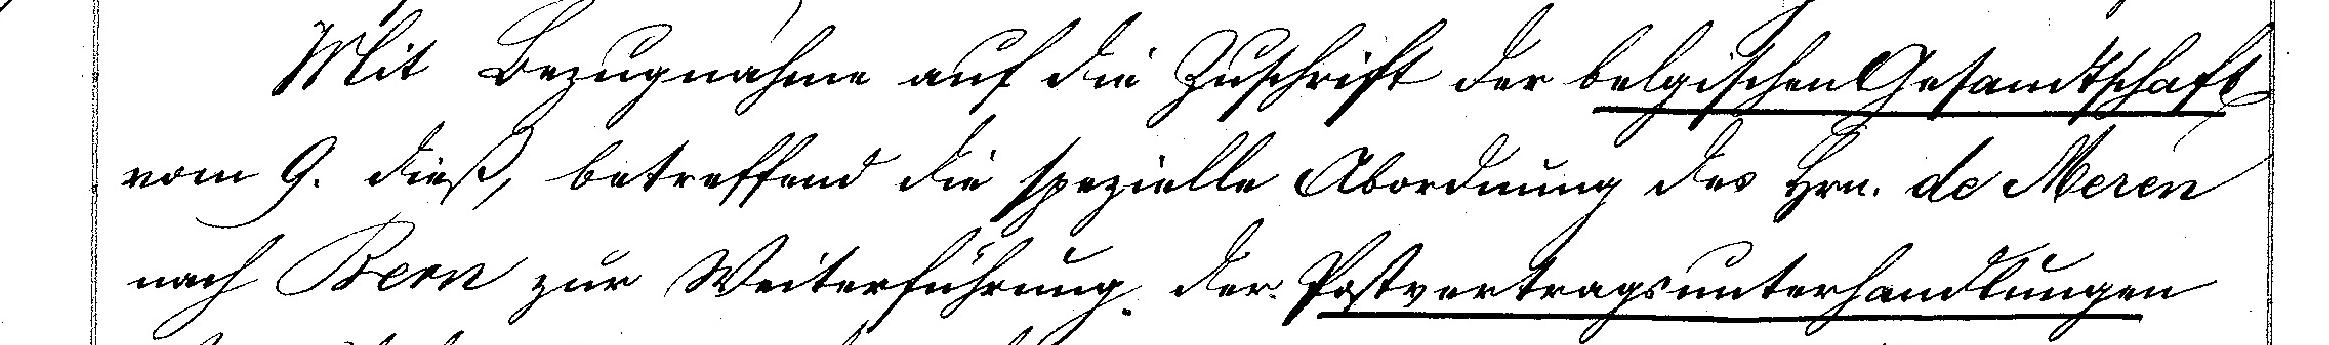 Mit Bezugnahme auf die Zuschrift der belgischen Gesandtschaft
vom 9. dieß, betreffend die spezielle Abordnung des Hrn. de Meren
nach Bern zur Weiterführung der Postvertragsunterhandlungen